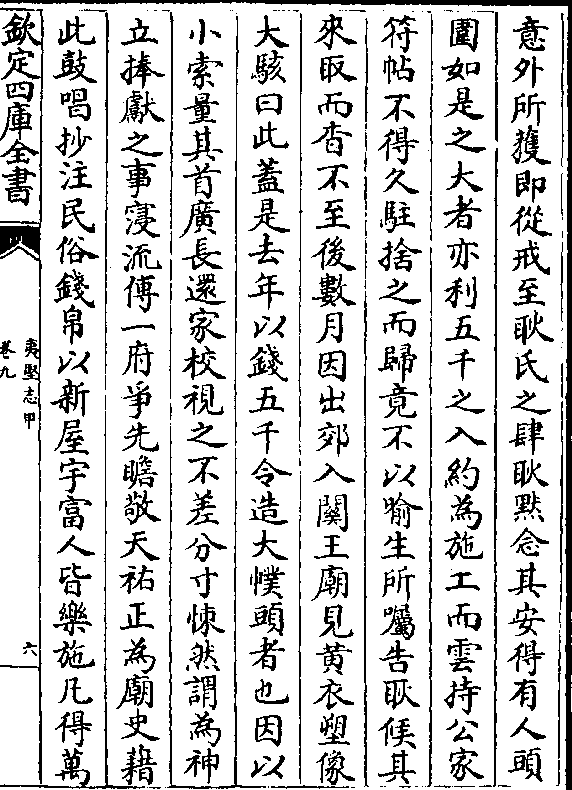 意外所獲即從戒至耿氏之肆耿黙念其安得有人頭
圍如是之大者亦利五千之入約為施工而雲持公家
符帖不得久駐捨之而歸竟不以喻生所囑告耿候其
來取而杳不至後數月因出郊入關王廟見黄衣塑像
大駭曰此蓋是去年以錢五千令造大幞頭者也因以
小索量其首廣長還家校視之不差分寸悚然謂為神
立捧獻之事寖流傳一府爭先瞻敬天祐正為廟史藉
此鼓唱抄注民俗錢帛以新屋宇富人皆樂施凡得萬
欽定四庫全書
夷堅志甲
卷九
六